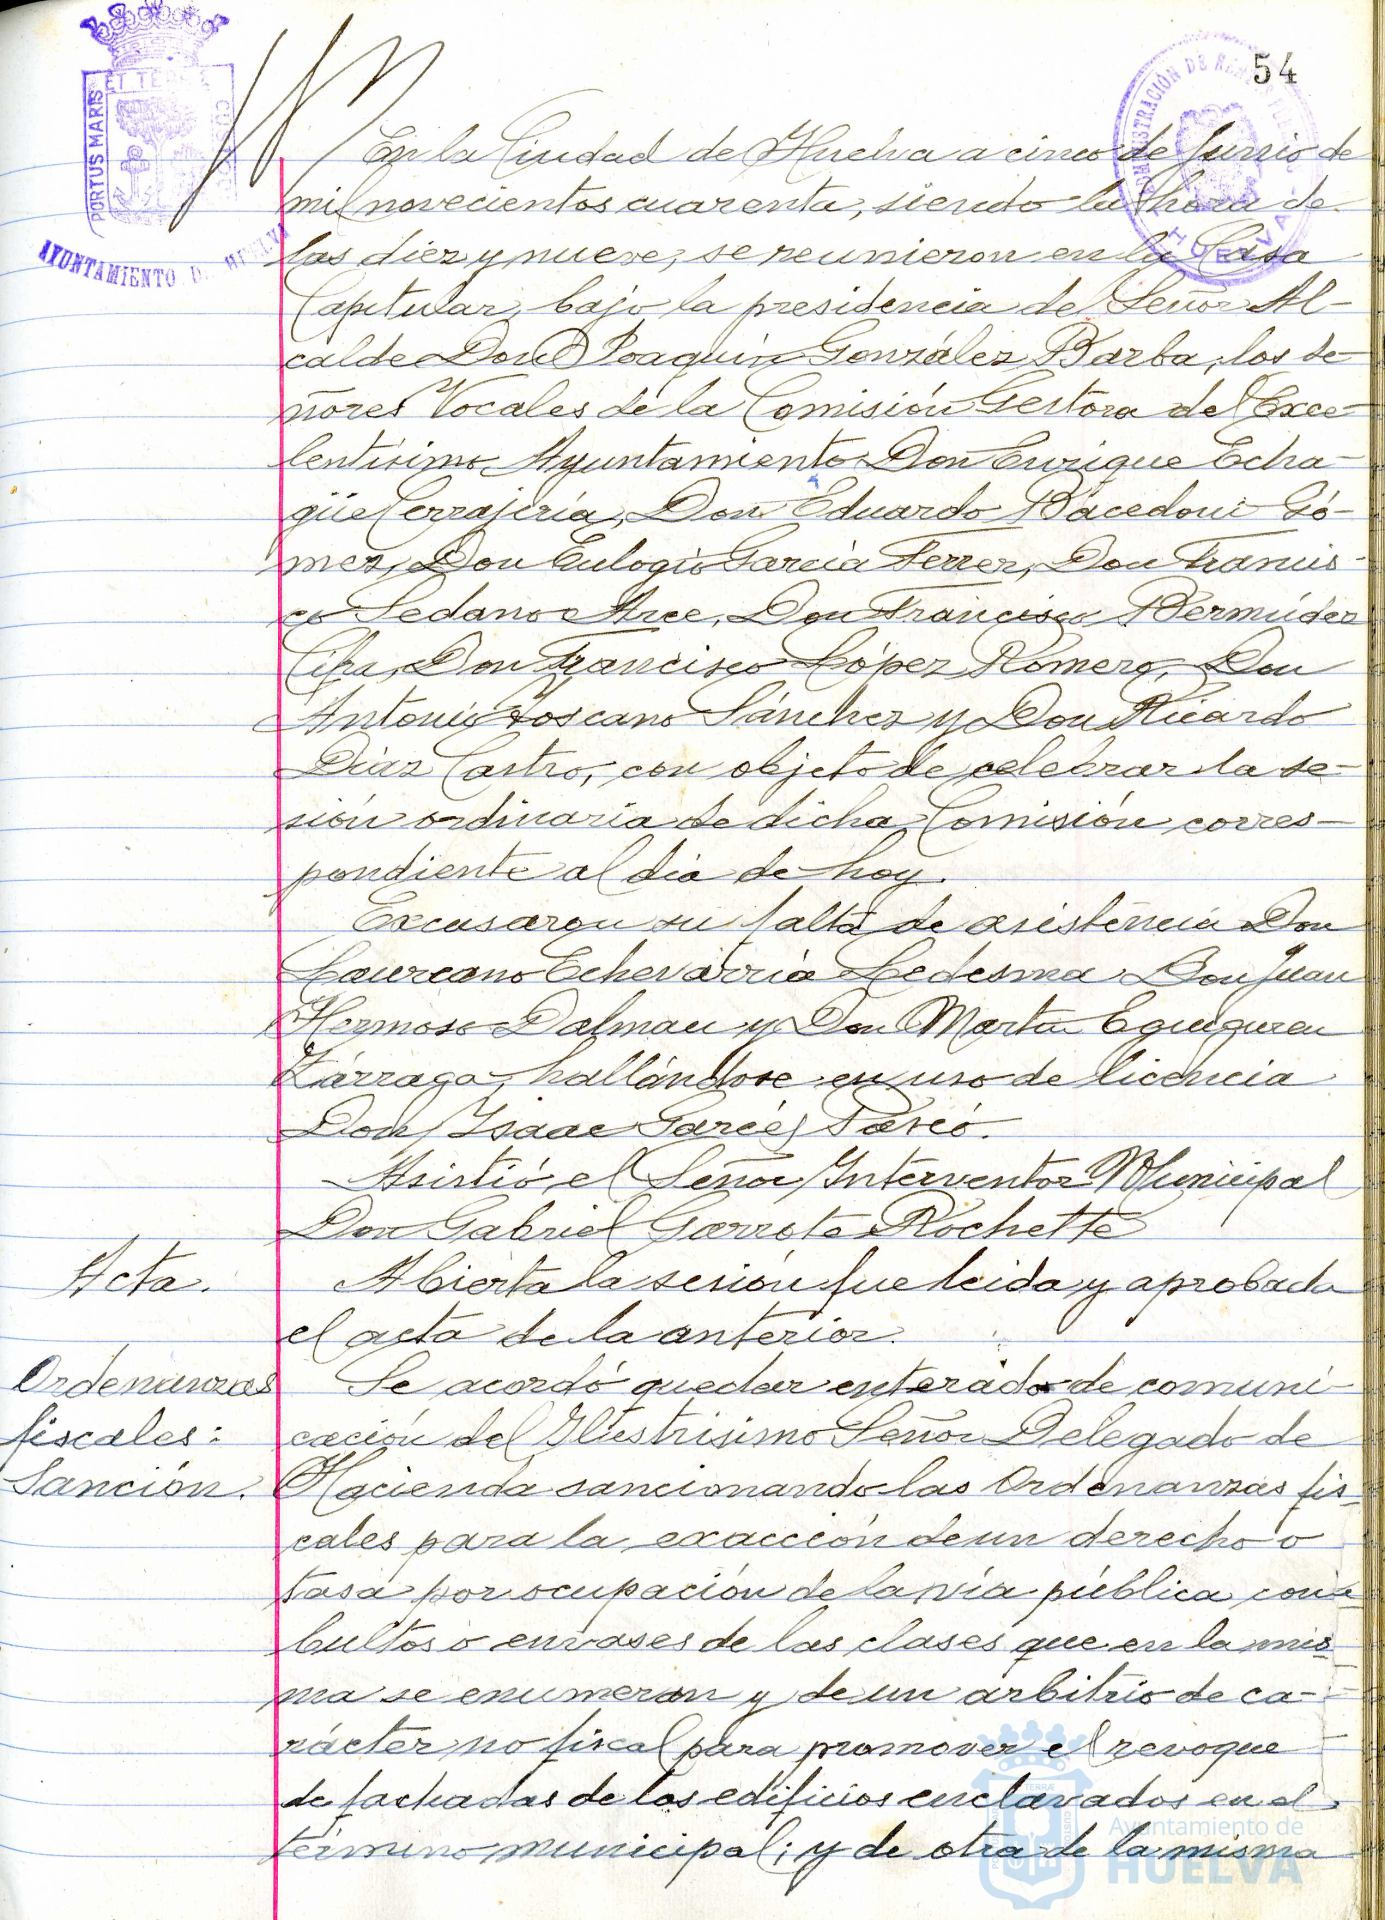 54
PORTUS MARIS ET TERRÆ CUSTOS
AYUNTAMIENTO DE HUELVA
ADMINISTRACIÓN DE RENTAS
HUELVA
En la Ciudad de Huelva a cinco de Junio de
mil novecientos cuarenta, siendo la hora de
las diez y nueve, se reunieron en la Casa
Capitular, bajo la presidencia del Señor Al-
calde Don Joaquín González Barba, los se-
ñores Vocales de la Comisión Gestora del Exce-
lentísimo Ayuntamiento Don Enrique Echa-
güe Cerrajería, Don Eduardo Bácedoni Gó-
mez, Don Eulogio García Ferrer, Don Francis-
co Sedano Arce, Don Francisco Bermúdez
Don Francisco López Romero, Don
Antonio Toscano Sánchez y Don Ricardo
Díaz Castro, con objeto de celebrar la se-
sión ordinaria de dicha Comisión corres-
pondiente al día de hoy.
Excusaron su falta de asistencia Don
Laureano Echevarría Ledesma Don Juan
Hermoso Dalmau y Don Martín Eguiguren
Zárraga, hallándose en uso de licencia
Don Isaac Garcés
Asistió, el Señor Interventor Municipal
Don Gabriel Garrote Rochette
Acta.
Abierta la sesión fue leida y aprobada
el acta de la anterior.
Ordenanzas
fiscales:
Sanción.
Se acordó quedar enterado de comuni-
cación del Ilustrisimo Señor Delegado de
Hacienda sancionando las Ordenanzas fis-
cales para la exacción de un derecho o
tasa por ocupación de la vía pública con
bultos o envases de las clases que en la mis-
ma se enumeran y de un arbitrio de ca-
rácter no fiscal para promover el revoque
de fachadas de los edificios enclavados en el
término municipal; y de otra de la misma
Ayuntamiento de
HUELVA